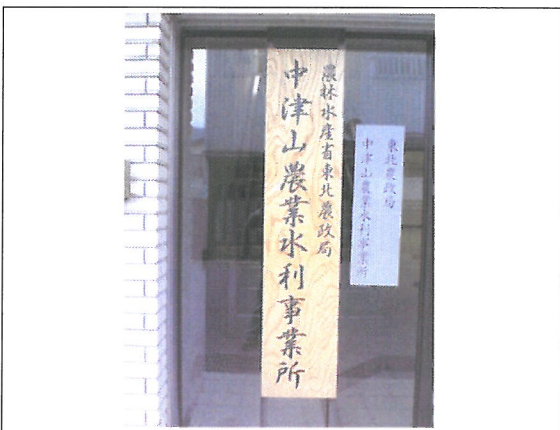 農林水産省東北農政局
中津山農業水利事業所
東北農政局
中津山農業水利事業所